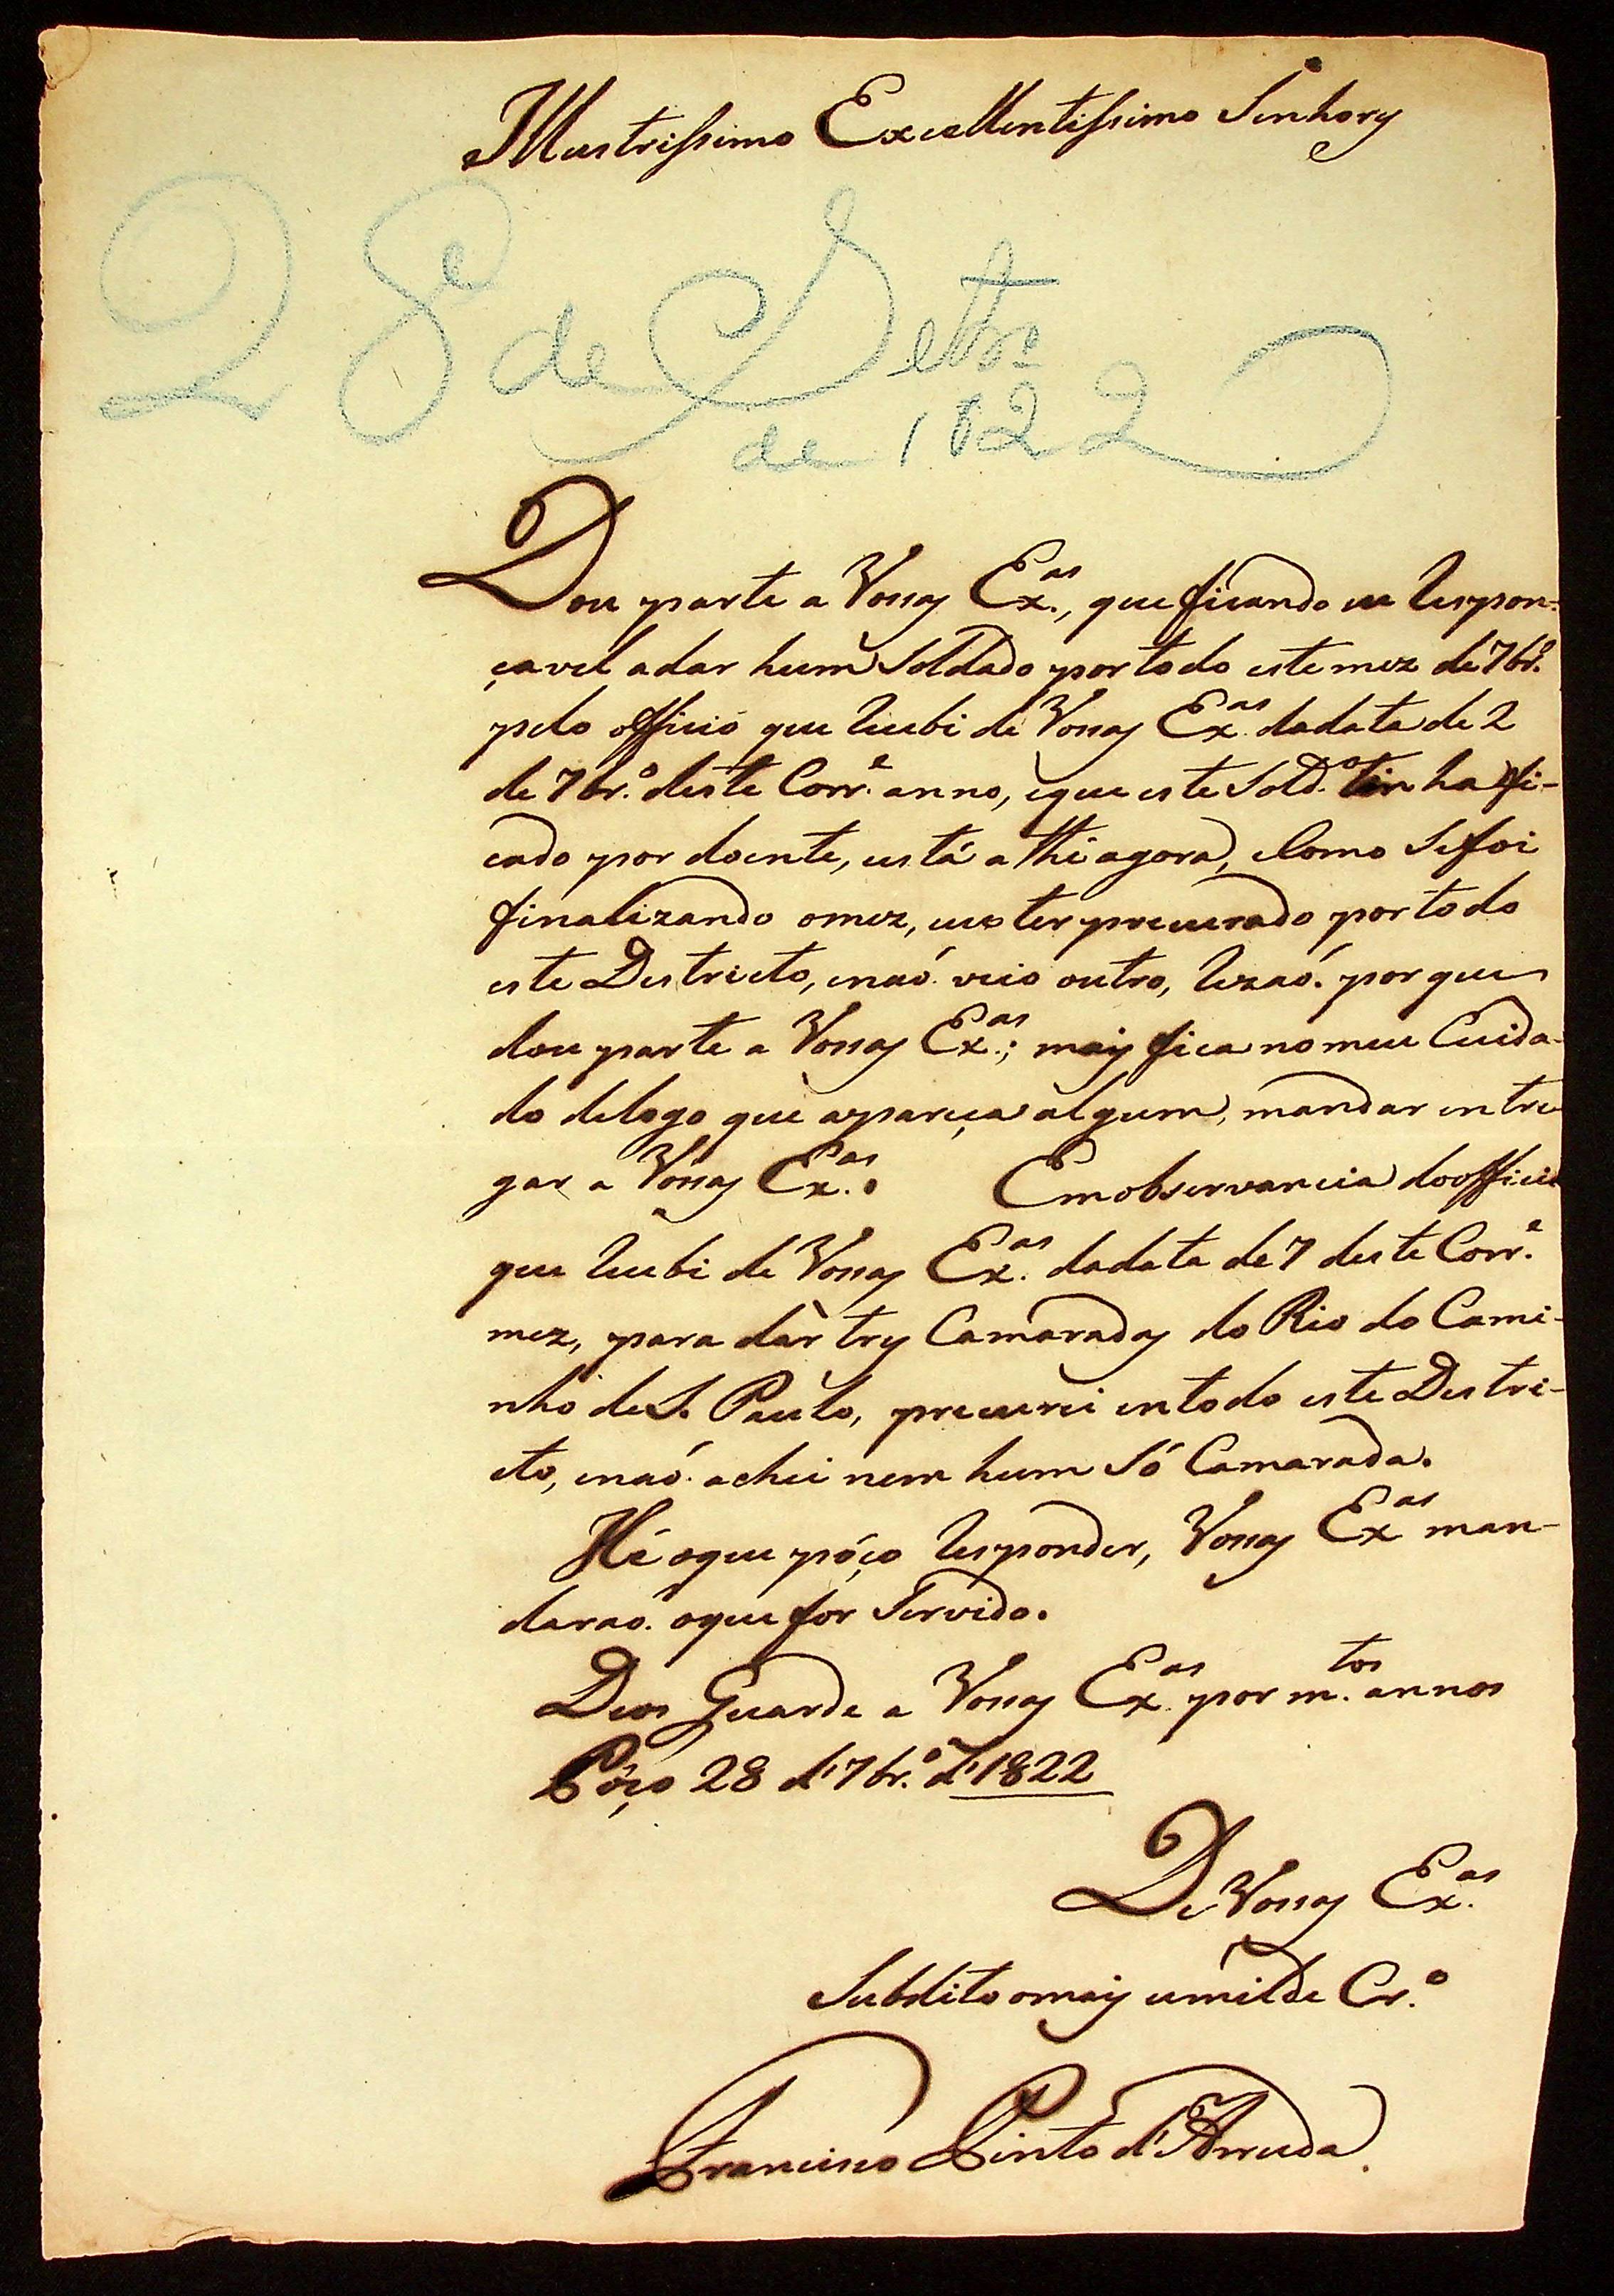 Illustrissimo Excellentissimo Senhores
28 de Setbrº
de 1822
Dou parte a Vossas Ex.as, que ficando eu Respon-
çavel adar hum Soldado portodo este mez de 7br.º
pelo officio que Recebi de Vossas Ex.as dadata de 2
de 7br.º deste Corr.e anno, eque este Sold.º tinha fi-
cado por doente, está a thé agora, eComo Sefoi
finalizando omez, eu o ter procurado portodo
este Destricto, enaó veio outro, Rezaó. por que
dou parte a Vossas Ex.as; mais fica no meu Cuida-
do delogo que apareça algum, mandar entre-
gar a Vossas Ex.as. Emobservancia doofficio
que Recebi de Vossas Ex.as dadata de 7 deste Corr.e
mez, para dár tres Camaradas do Rio do Cami-
nho de S. Paulo, procurei entodo este Destri-
cto, enaó achei nem hum Só Camarada.
Hé oque póço Responder, Vossas Ex.as man-
darao. oque for Servido.
Deos Guarde a Vossas Ex.as por m.tos annos
Póço 28 d'7br.º d'1822
De Vossas Ex.as
Subdito omais umilde Cr.º
Francisco Pinto d'Arruda